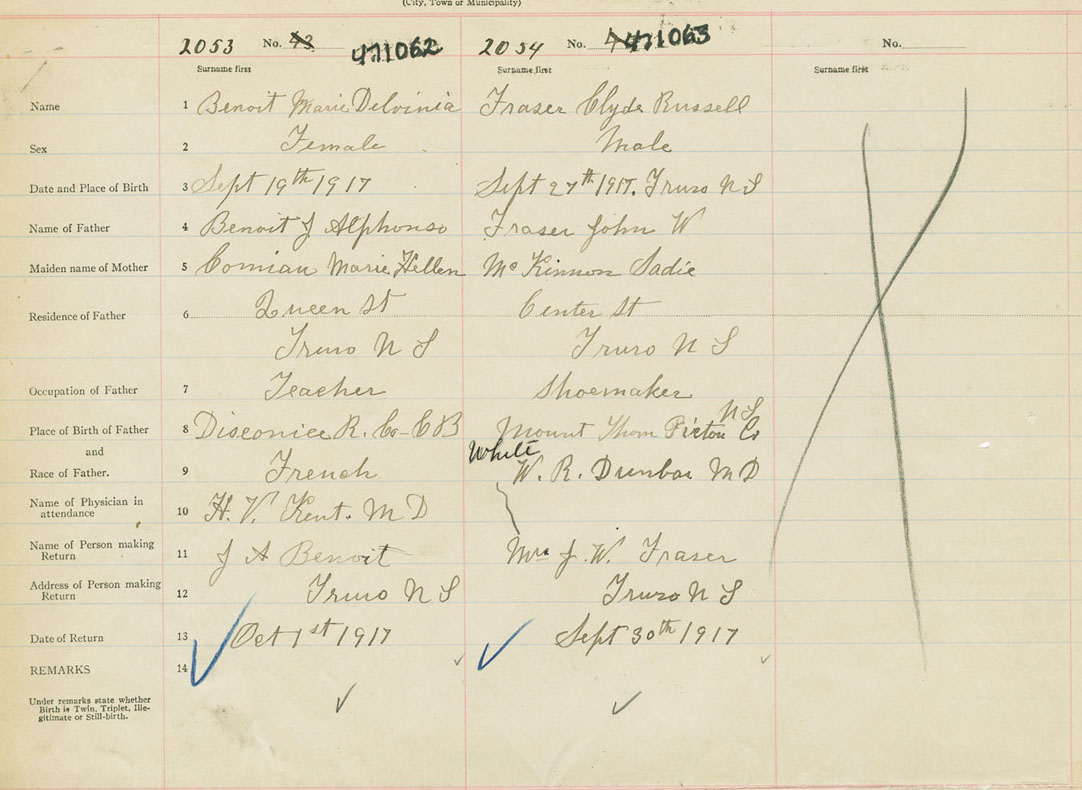 (City, Town or Municipality)
2053 No. 43 471062 2054 No. 4 471063 No.
Surname first Surname first Surname first
Name 1 Benoit Marie Delvinia Fraser Clyde Russell
Sex 2 Female Male
Date and Place of Birth 3 Sept 19th 1917 Sept 27th 1917. Truro N S
Name of Father 4 Benoit J Alphonso Fraser John W
Maiden name of Mother 5 Marie Hellen McKinnon Sadie
Residence of Father 6 Queen St Center St
Truro N S Truro N S
Occupation of Father 7 Teacher Shoemaker
N S
Place of Birth of Father 8 R. Co - C B Mount Thom Pictou Co
and White
Race of Father. 9 French W. R. Dunbar M D
Name of Physician in
attendance 10 H. V. Kent. M D
Name of Person making
Return 11 J A Benoit Mrs J. W. Fraser
Address of Person making
Return 12 Truro N S Truro N S
Date of Return 13 Oct 1st 1917 Sept 30th 1917
REMARKS 14
Under remarks state whether
Birth is Twin, Triplet, Ille-
gitimate or Still-birth.